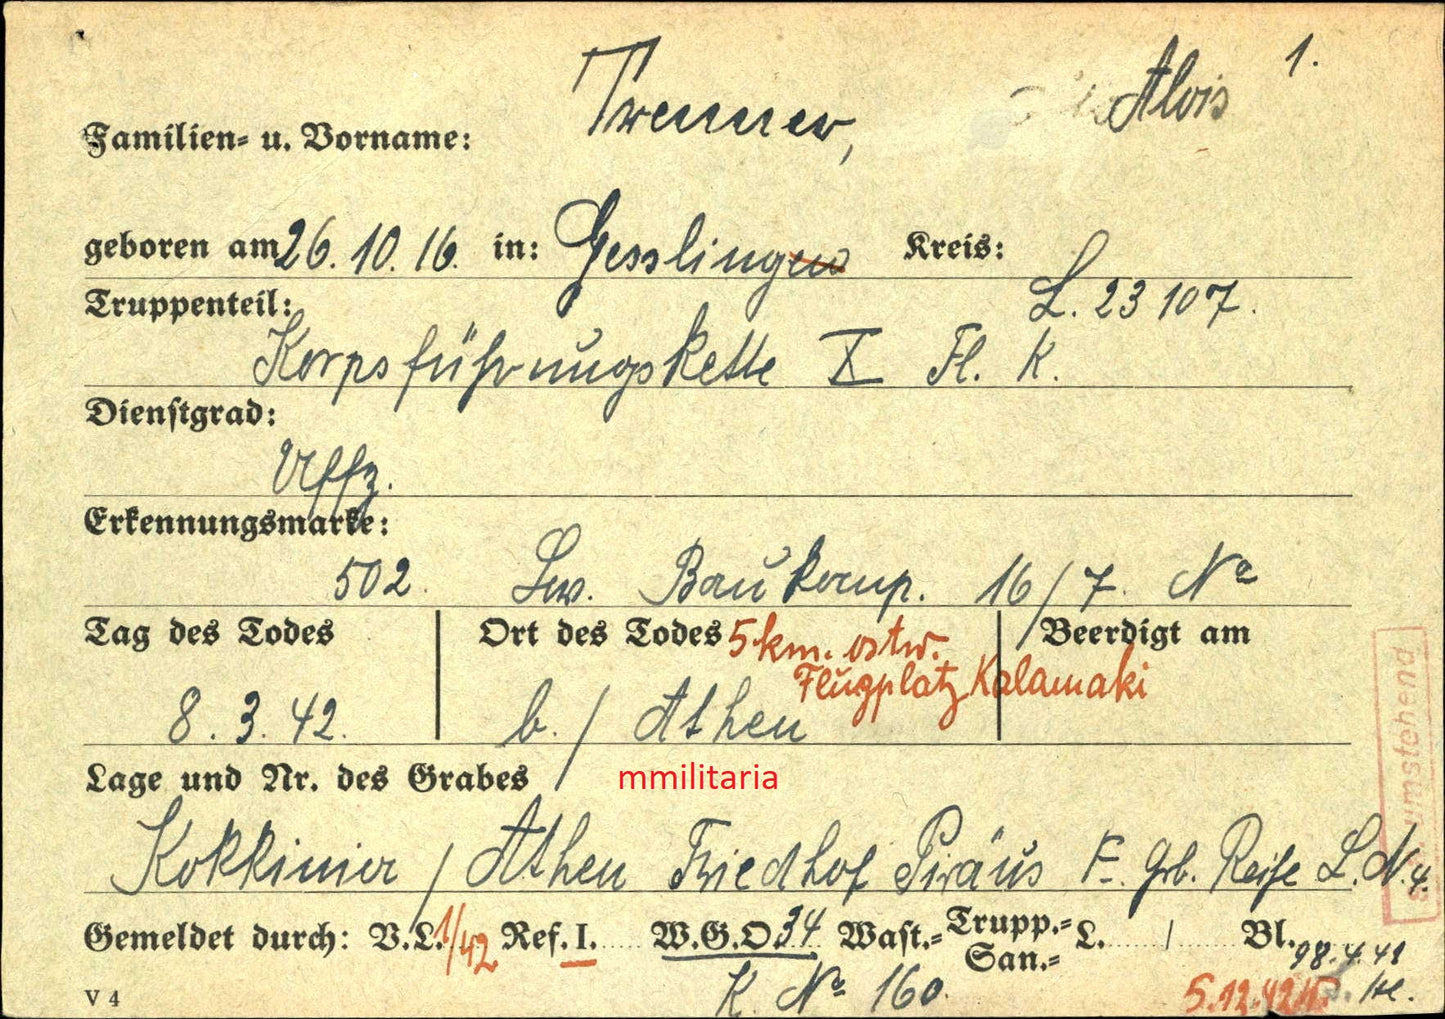 Alois 1.
Familien= u. Vorname: Trenner,
geboren am 26. 10. 16. in: Gesslingen Kreis:
Truppenteil: L. 23 107.
Korpsführungskette X Fl. K.
Dienstgrad:
Uffz.
Erkennungsmarke:
502. Lw. Baukomp. 16/7. No
Tag des Todes Ort des Todes 5 km. ostw. Beerdigt am
Flugplatz Kalamaki
8. 3. 42. b./ Athen
Lage und Nr. des Grabes mmilitaria
Kokkinier / Athen Friedhof Piräus F. Grb. Reihe L. N. 4.
Gemeldet durch: V.L. 1/42 Ref. I. W.G.O 34 Wast.= Trupp.= L. / Bl.
San.=
K. No 160.
V 4 5.12.42
umstehend